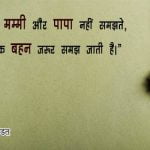 मम्मी और पापा नहीं समझते,
बहन जरूर समझ जाती है।”